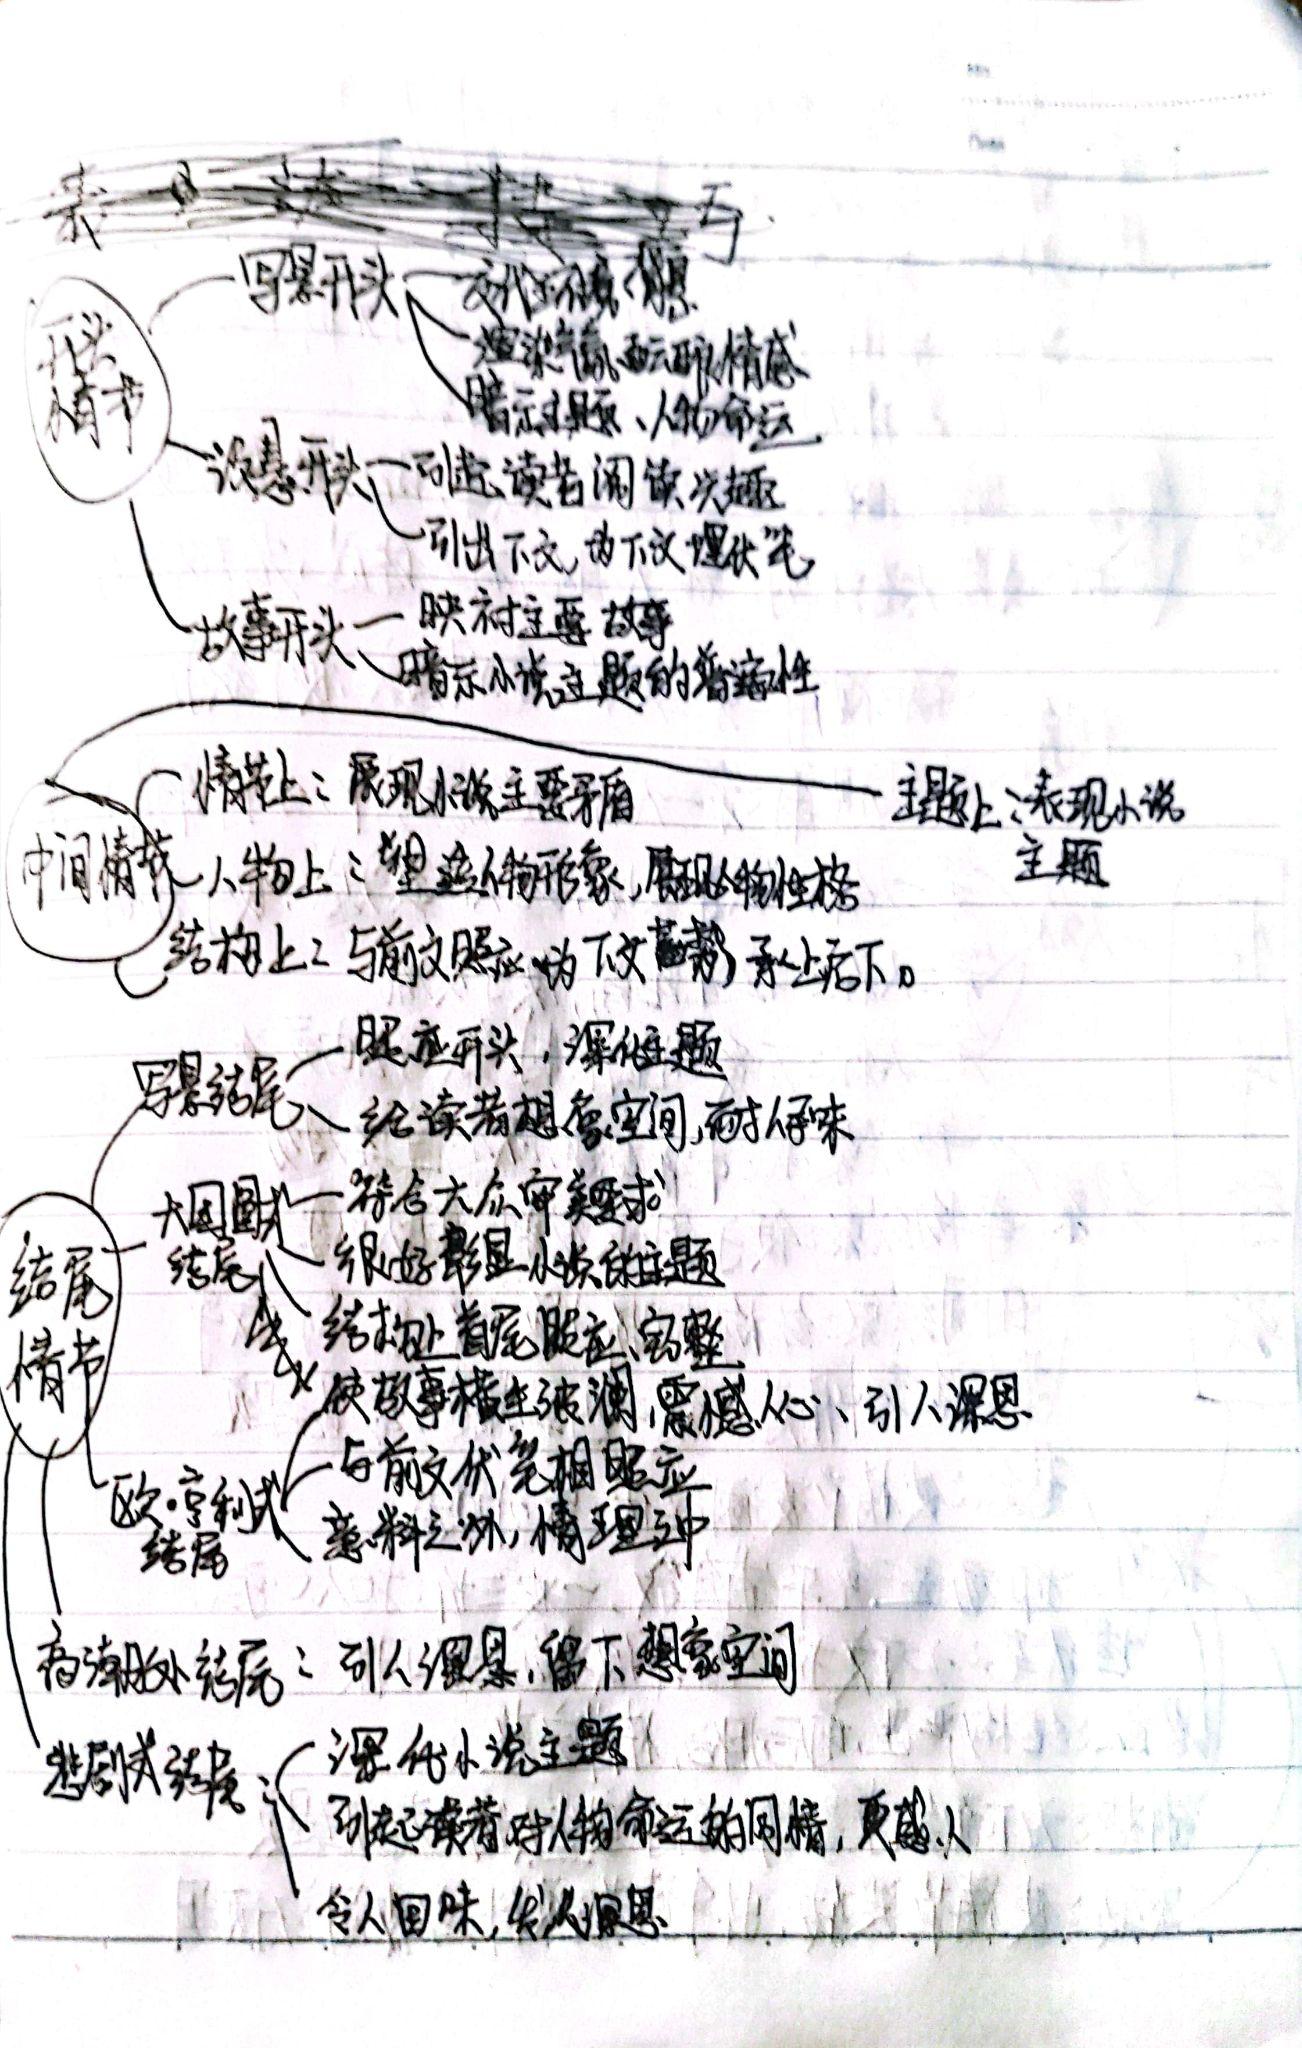 写景开头
交代环境、背景
渲染气氛、烘托情感
暗示主题、人物命运
开头
情节
设悬开头
引起读者阅读兴趣
引出下文,为下文埋伏笔
故事开头
映衬主要故事
暗示小说主题的普遍性
中间情节
情节上:展现小说主要矛盾
主题上:表现小说
主题
人物上:塑造人物形象,展现人物性格
结构上:与前文照应,为下文蓄势,承上启下。
写景结尾
照应开头,深化主题
给读者想象空间,耐人寻味
结尾
情节
大团圆式
结尾
符合大众审美要求
很好彰显小说的主题
结构上首尾照应、完整
使故事横生波澜,震憾人心、引人深思
欧·亨利式
结尾
与前文伏笔相照应
意料之外,情理之中
结尾:引人深思,留下想象空间
悲剧式结尾:
深化小说主题
引起读者对人物命运的同情,更感人
令人回味,发人深思